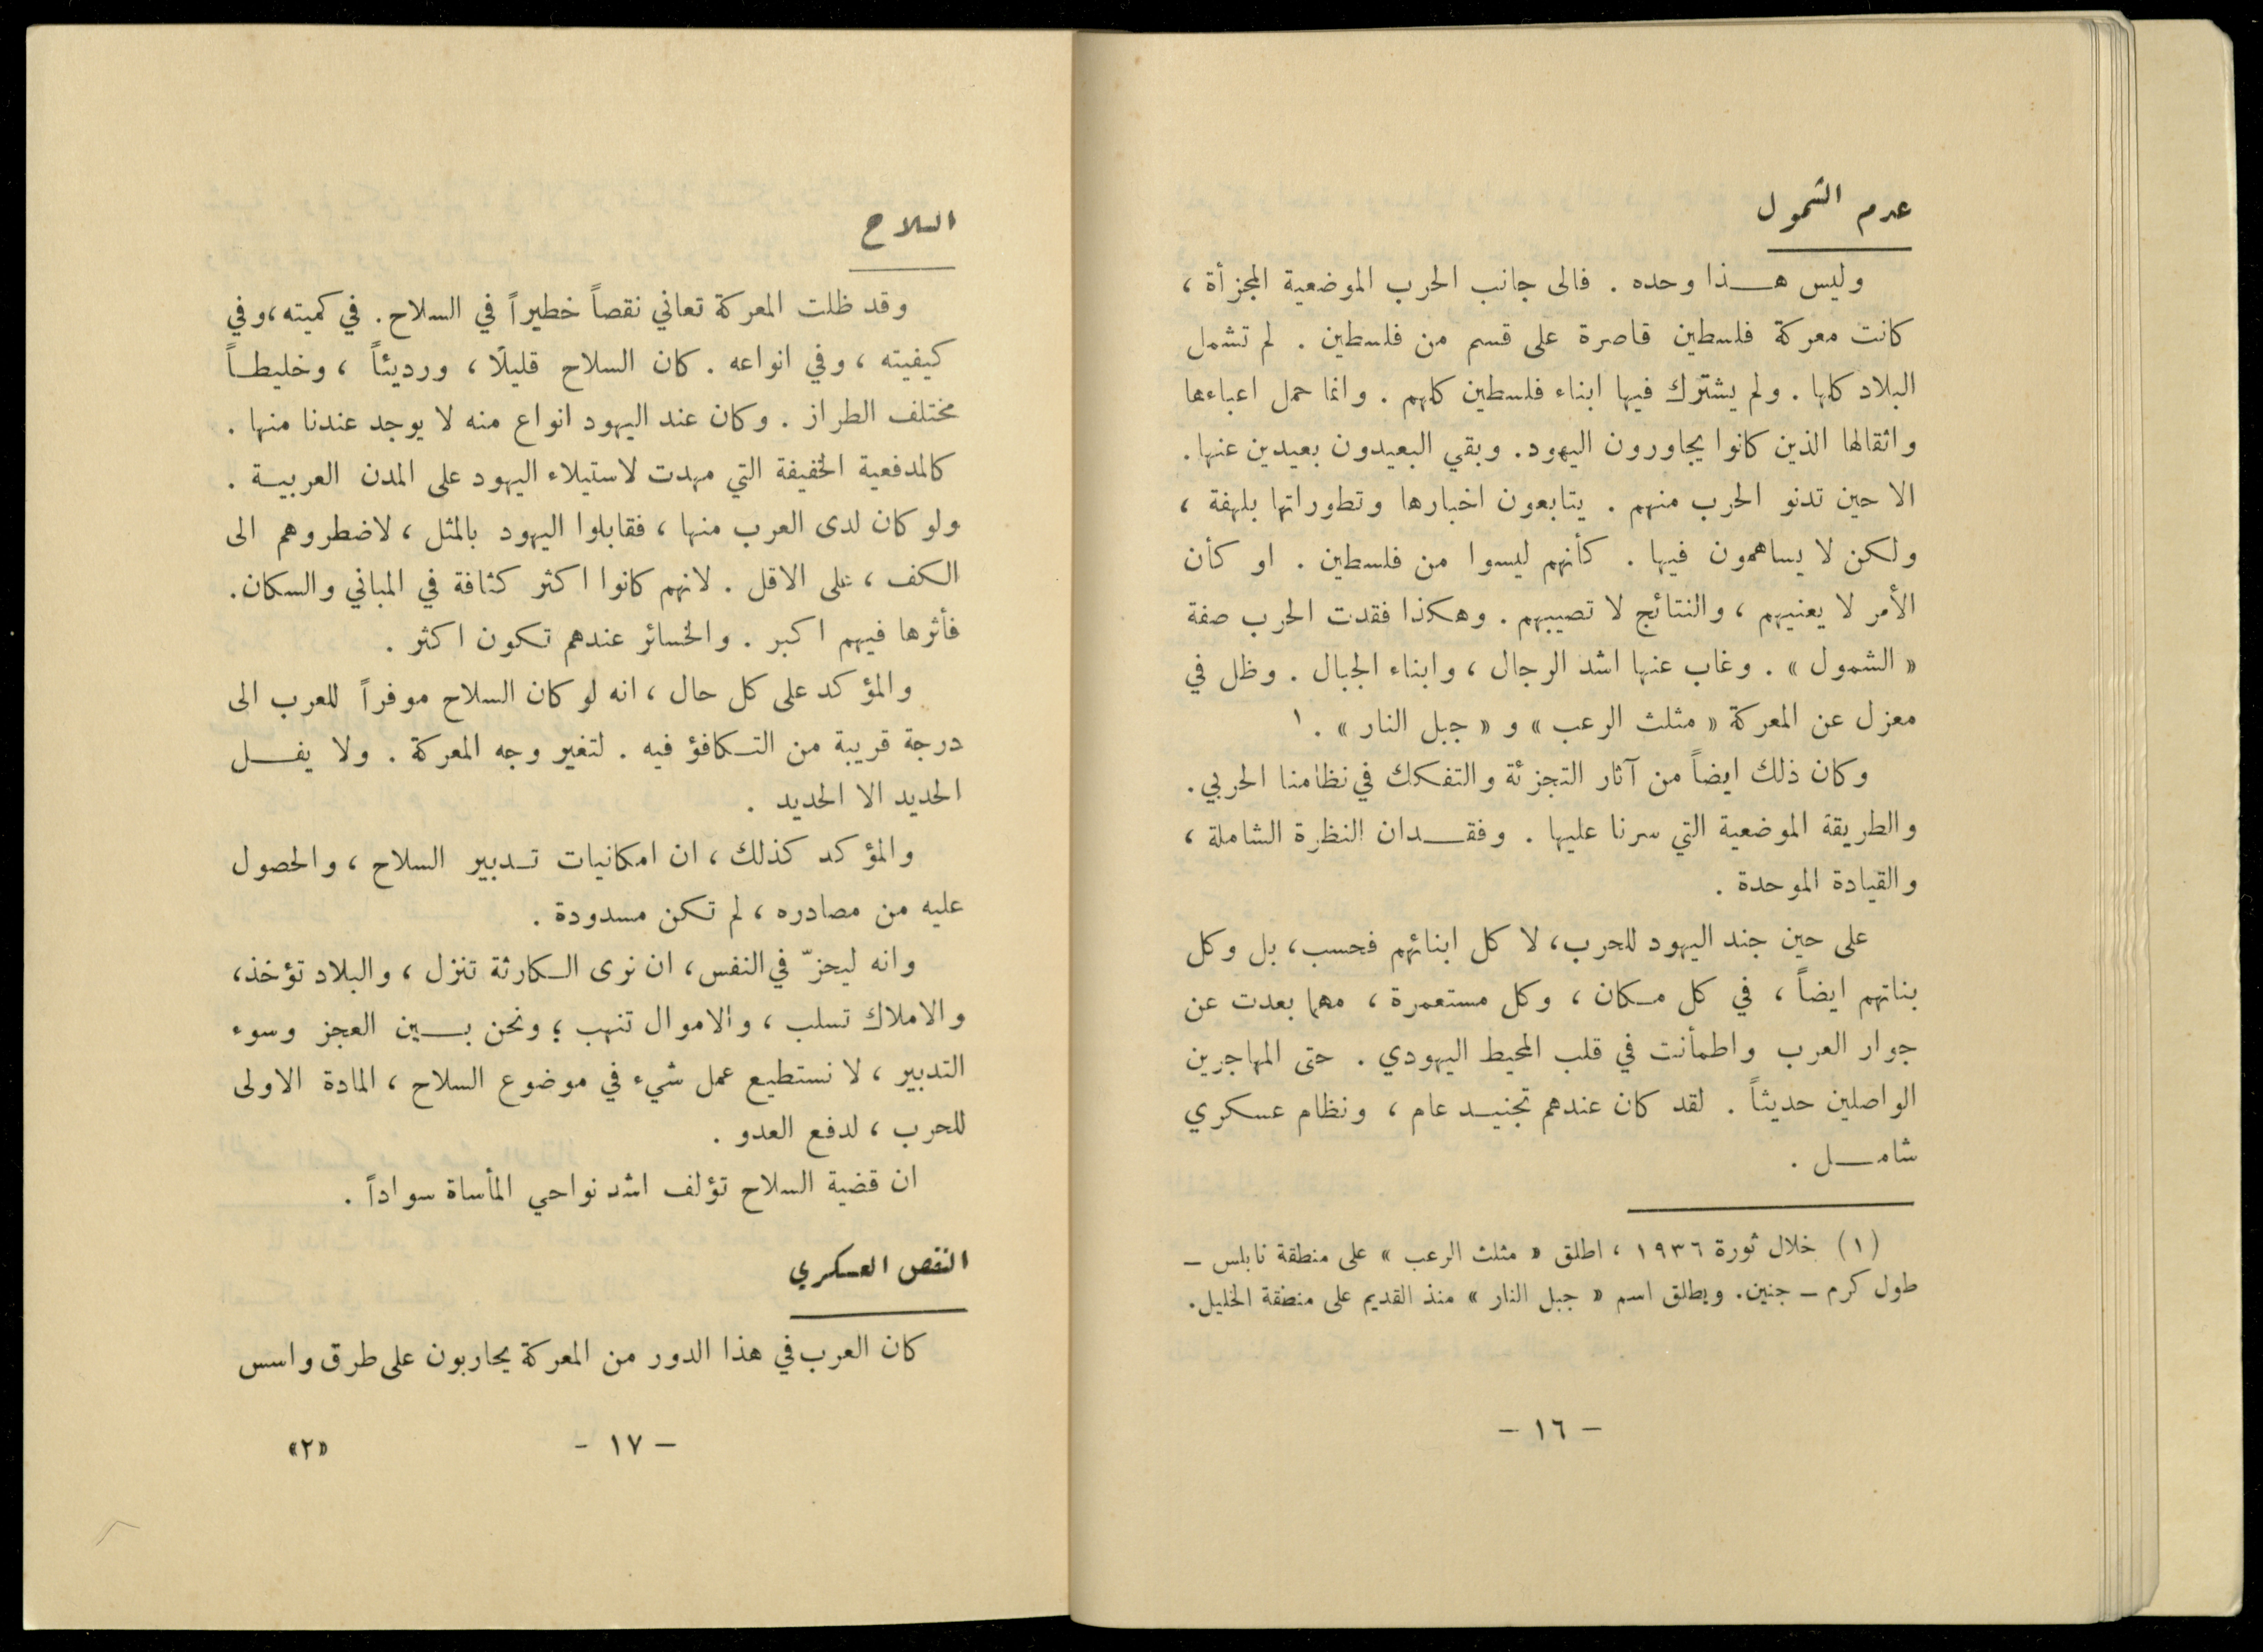 عدم الشمول
وليس هذا وحده . فالى جانب الحرب الموضعية المجزأة ،
كانت معركة فلسطين قاصرة على قسم من فلسطين . لم تشمل
البلاد كلها . ولم يشترك فيها ابناء فلسطين كلهم . وانما حمل اعباءها
واثقالها الذين كانوا يجاورون اليهود. وبقي البعيدون بعيدين عنها.
الا حين تدنو الحرب منهم . يتابعون اخبارها وتطوراتها بلهفة ،
ولكن لا يساهمون فيها . كأنهم ليسوا من فلسطين . او كأن
الأمر لا يعنيهم ، والنتائج لا تصيبهم . وهكذا فقدت الحرب صفة
« الشمول » . وغاب عنها اشد الرجال ، وابناء الجبال . وظل في
معزل عن المعركة « مثلث الرعب » و « جبل النار » . ١
وكان ذلك ايضاً من آثار التجزئة والتفكك في نظامنا الحربي .
والطريقة الموضعية التي سرنا عليها . وفقدان النظرة الشاملة ،
والقيادة الموحدة .
على حين جند اليهود للحرب، لا كل ابنائهم فحسب، بل وكل
بناتهم ايضاً ، في كل مكان ، وكل مستعمرة ، مهما بعدت عن
جوار العرب واطمأنت في قلب المحيط اليهودي . حتى المهاجرين
الواصلين حديثاً . لقد كان عندهم تجنيد عام ، ونظام عسكري
شامل .
(١) خلال ثورة ١٩٣٦ ، اطلق « مثلث الرعب » على منطقة نابلس –
طول كرم – جنين. ويطلق اسم « جبل النار » منذ القديم على منطقة الخليل.
– ١٦ –
السلاح
وقد ظلت المعركة تعاني نقصاً خطيراً في السلاح. في كميته، وفي
كيفيته ، وفي انواعه . كان السلاح قليلًا ، ورديئاً ، وخليطاً
مختلف الطراز . وكان عند اليهود انواع منه لا يوجد عندنا منها .
كالمدفعية الخفيفة التي مهدت لاستيلاء اليهود على المدن العربية .
ولو كان لدى العرب منها ، فقابلوا اليهود بالمثل ، لاضطروهم الى
الكف ، على الاقل . لانهم كانوا اكثر كثافة في المباني والسكان.
فأثرها فيهم اكبر . والخسائر عندهم تكون اكثر .
والمؤكد على كل حال ، انه لو كان السلاح موفراً للعرب الى
درجة قريبة من التكافؤ فيه . لتغير وجه المعركة . ولا يفل
الحديد الا الحديد .
والمؤكد كذلك ، ان امكانيات تدبير السلاح ، والحصول
عليه من مصادره ، لم تكن مسدودة .
وانه ليحزّ في النفس، ان نرى الكارثة تنزل ، والبلاد تؤخذ،
والاملاك تسلب ، والاموال تنهب ؛ ونحن بين العجز وسوء
التدبير ، لا نستطيع عمل شيء في موضوع السلاح ، المادة الاولى
للحرب ، لدفع العدو .
ان قضية السلاح تؤلف اشد نواحي المأساة سواداً .
النقص العسكري
كان العرب في هذا الدور من المعركة يحاربون على طرق واسس
– ١٧ –
«٢»